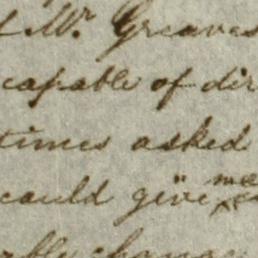 Mr. Greaves
capable of dir
times asked
could give me